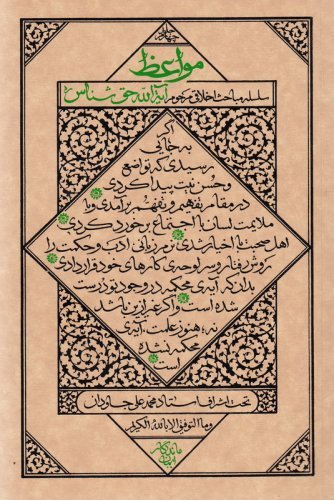 چهارم
مواعظ
سلسله مباحث اخلاقی مرحوم آیة الله حق شناس
اگر
به جایی
رسیدی که تواضع
و حسن نیت پیدا کردی
در مقام تفهم و تفهیم برآمدی و با
ملایمت لسان با اجتماع برخورد کردی
اهل صحبت با اخیار شدی نرم زبانی ادب و حکمت را
روش رفتار و سرلوحه‌ی کارهای خود قرار دادی
بدان که آیه‌ی محکمه در وجود تو درست
شده است و اگر غیر از این باشد
نه؛ هنوز علمت آیه‌ی
محکمه نشده
است
تحت اشراف استاد محمد علی جاودان
و ما التوفیق الا بالله الکریم